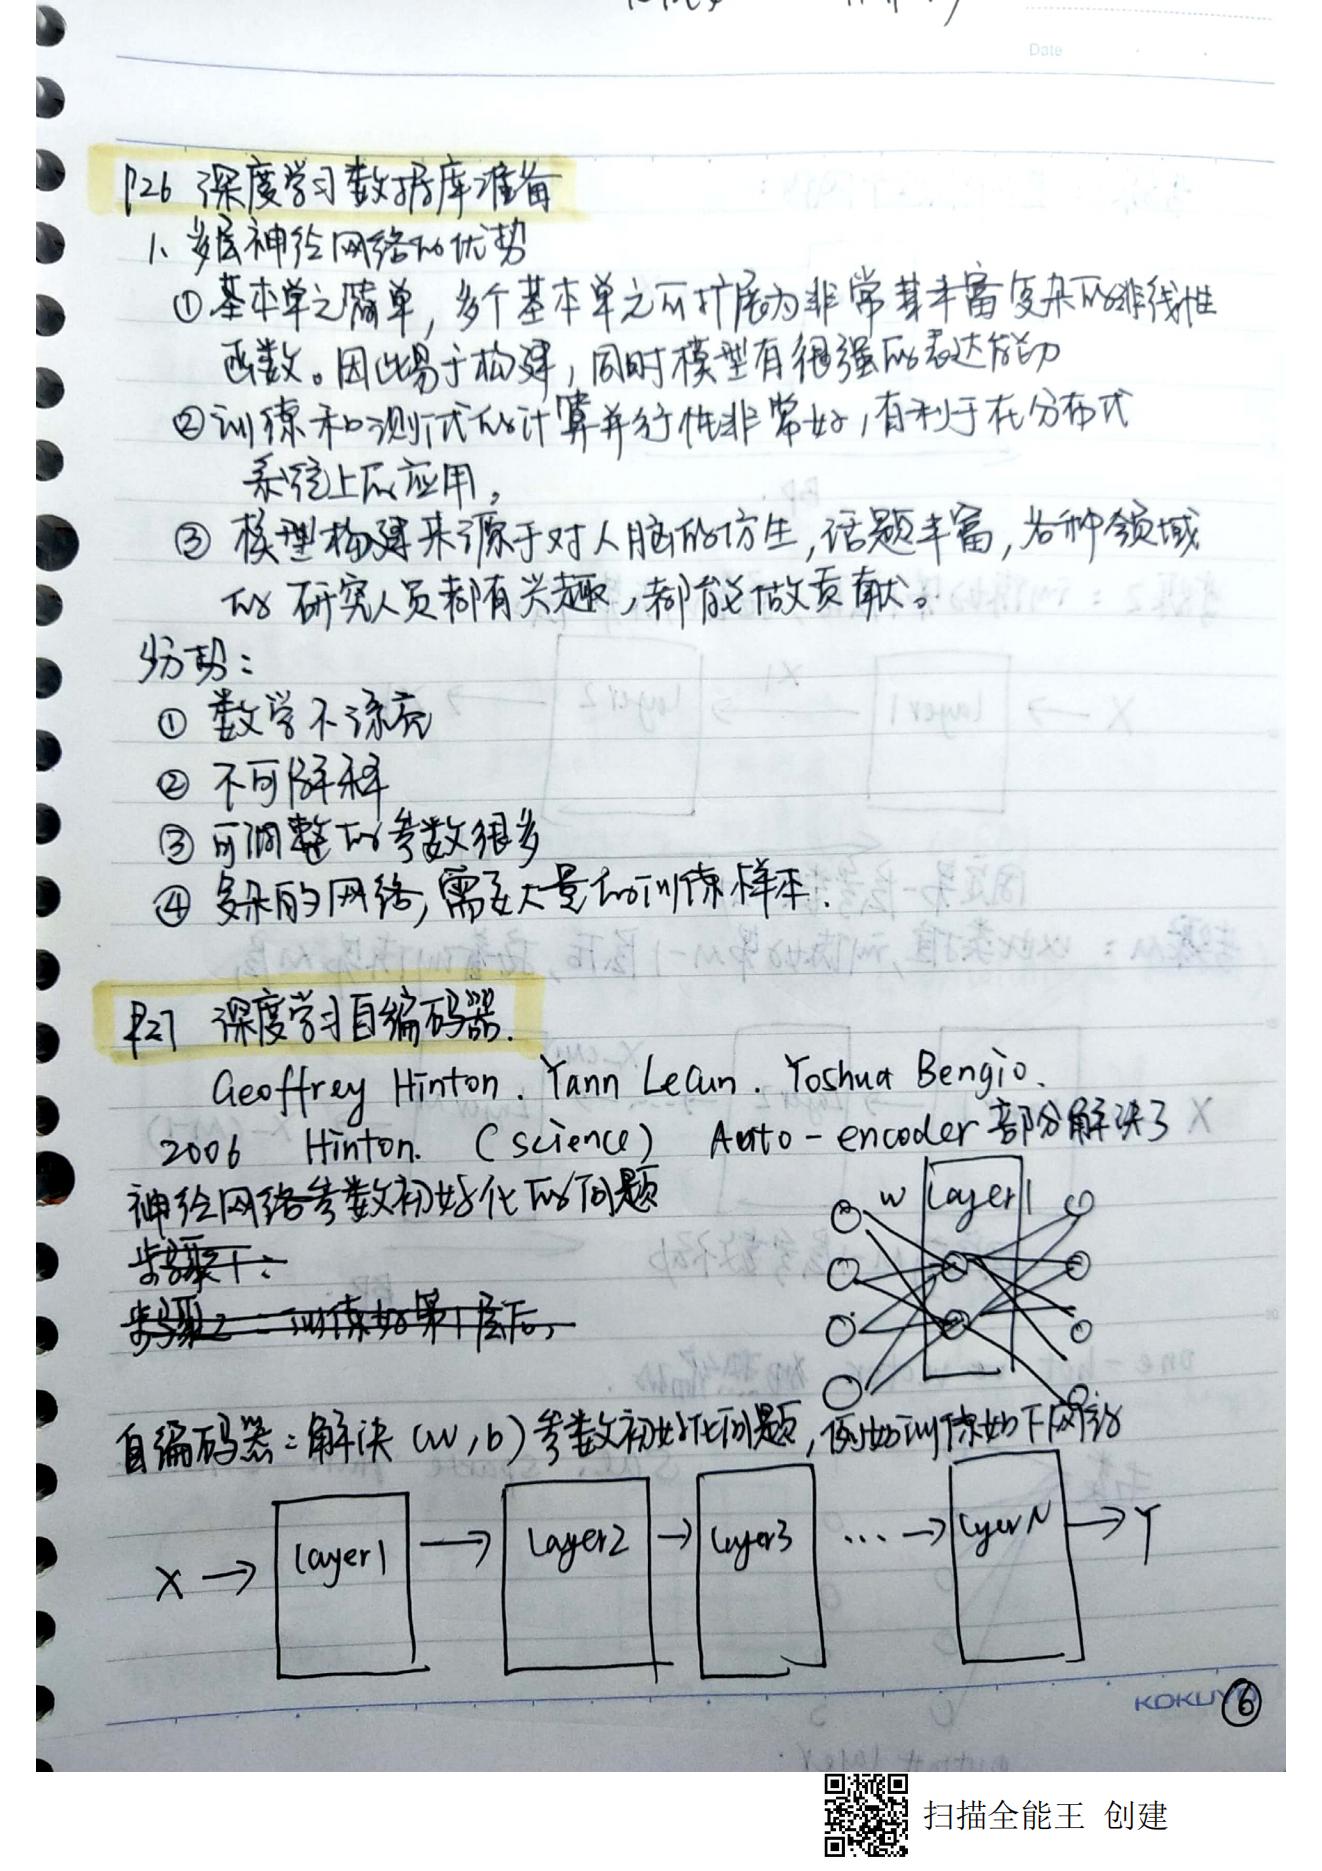 Date
P26 深度学习数据库准备
1、多层神经网络的优势
① 基本单元简单，多个基本单元可扩展为非常其丰富复杂的非线性
函数。因此易于构建，同时模型有很强的表达能力
② 训练和测试的计算并行性非常好，有利于在分布式
系统上的应用。
③ 模型构建来源于对人脑的仿生，话题丰富，各种领域
的研究人员都有兴趣，都能做贡献。
劣势：
① 数学不漂亮
② 不可解释
③ 可调整的参数很多
④ 复杂的网络，需要大量的训练样本.
P27 深度学习自编码器.
Geoffrey Hinton. Yann LeCun. Yoshua Bengio.
2006 Hinton. (science) Auto-encoder 部分解决了
神经网络参数初始化的问题
W Layer1
步骤1：
步骤2 训练好第1层后，
自编码器：解决 (w,b) 参数初始化问题，例如训练如下网络
X → Layer1 → Layer2 → Layer3 ... → LayerN → Y
KOKUYO
⑥
扫描全能王 创建